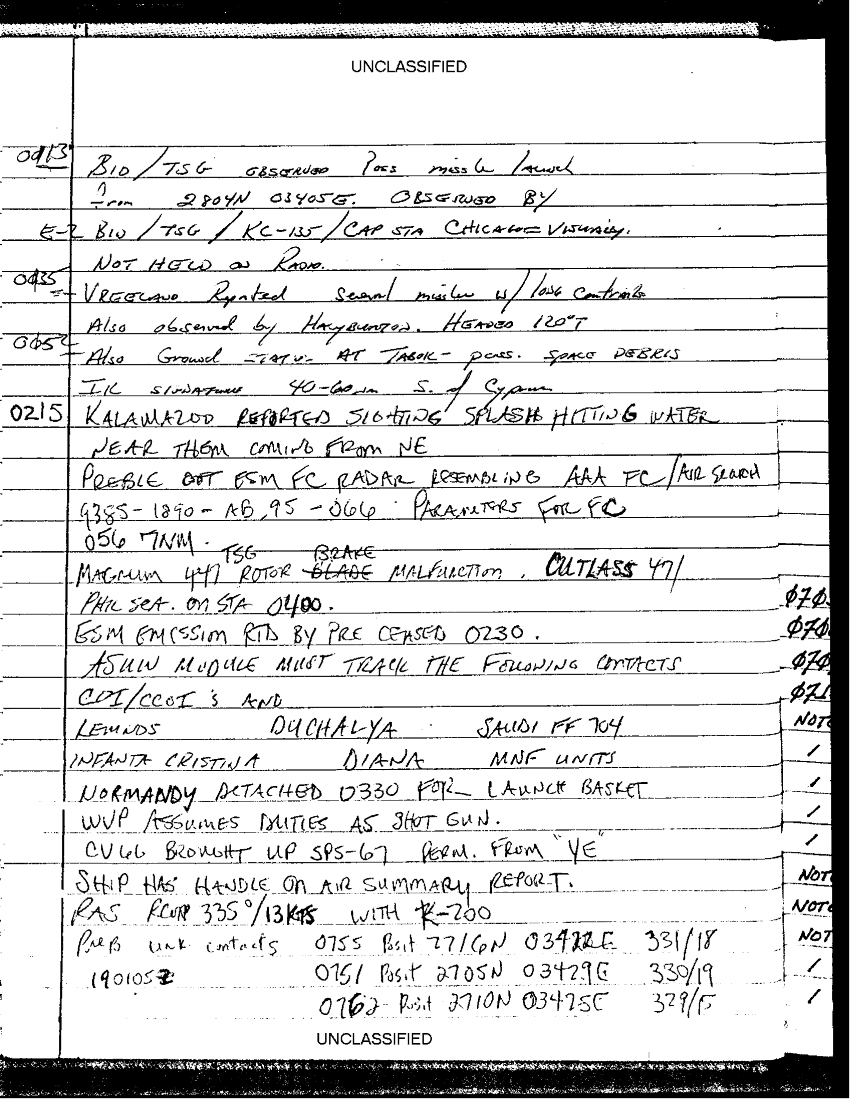 UNCLASSIFIED
0413 BIO/TSG OBSERVED Poss missle launch
? From 2804N 03405E. OBSERVED BY
E-2 BIO/TSG/KC-135/CAP STA CHICAGO = VISUALLY.
NOT HELD ON RADAR.
0435 VREELAND Reported several missiles w/ long contrails
Also observed by HALYBURTON. HEADED 120°T
Also Ground AT - poss. SPACE DEBRIS
IR SIGNATURE 40-60 nm S. of Cyprus
0215 KALAMAZOO REPORTED SIGHTING SPLASH HITTING WATER
NEAR THEM COMING FROM NE
PREBLE GOT ESM FC RADAR RESEMBLING AAA FC/AIR SEARCH
9385-1890-AB, 95-066 PARAMETERS FOR FC
056 7NM.
TSG BRAKE
MAGNUM 447 ROTOR BLADE MALFUNCTION. CUTLASS 47/
PHIL SEA. ON STA 0400.
ESM EMISSION RTD BY PRE CEASED 0230.
ASUW MODULE MUST TRACK THE FOLLOWING CONTACTS
COI/CCOI'S AND
LEMNOS DUCHALYA SAUDI FF 704
INFANTA CRISTINA DIANA MNF UNITS
NORMANDY DETACHED 0330 FOR LAUNCH BASKET
WVP ASSUMES DUTIES AS SHOT GUN.
CV66 BROUGHT UP SPS-67 PERM. FROM "YE"
SHIP HAS HANDLE ON AIR SUMMARY REPORT.
RAS RCUP 335°/13KTS WITH K-200
PREB unk contacts 0755 Posit 2716N 03422E 331/18
190105Z 0751 Posit 2705N 03429E 330/19
0762 Posit 2710N 03425E 329/15
UNCLASSIFIED